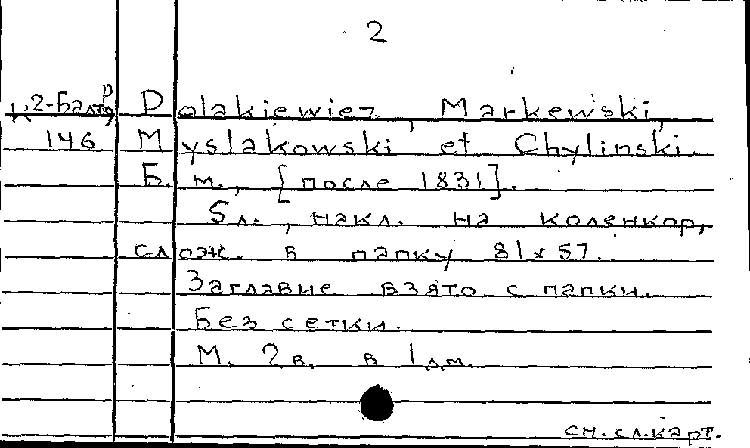 2
К.2-Балт Polakiewicz, Markewski,
146 Myslakowski et Chylinski.
Б. м., [после 1831].
5 л., накл. на коленкор,
слож. в папку 81x57.
Заглавие взято с папки.
Без сетки.
М. 2 в. в 1 дм.
см. сл. карт.